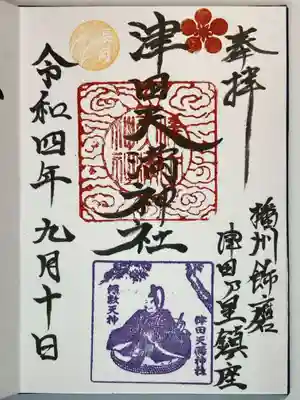 奉拝
播州飾磨
津田の里鎮座
津田天満神社
令和四年九月十日
津田天満神社